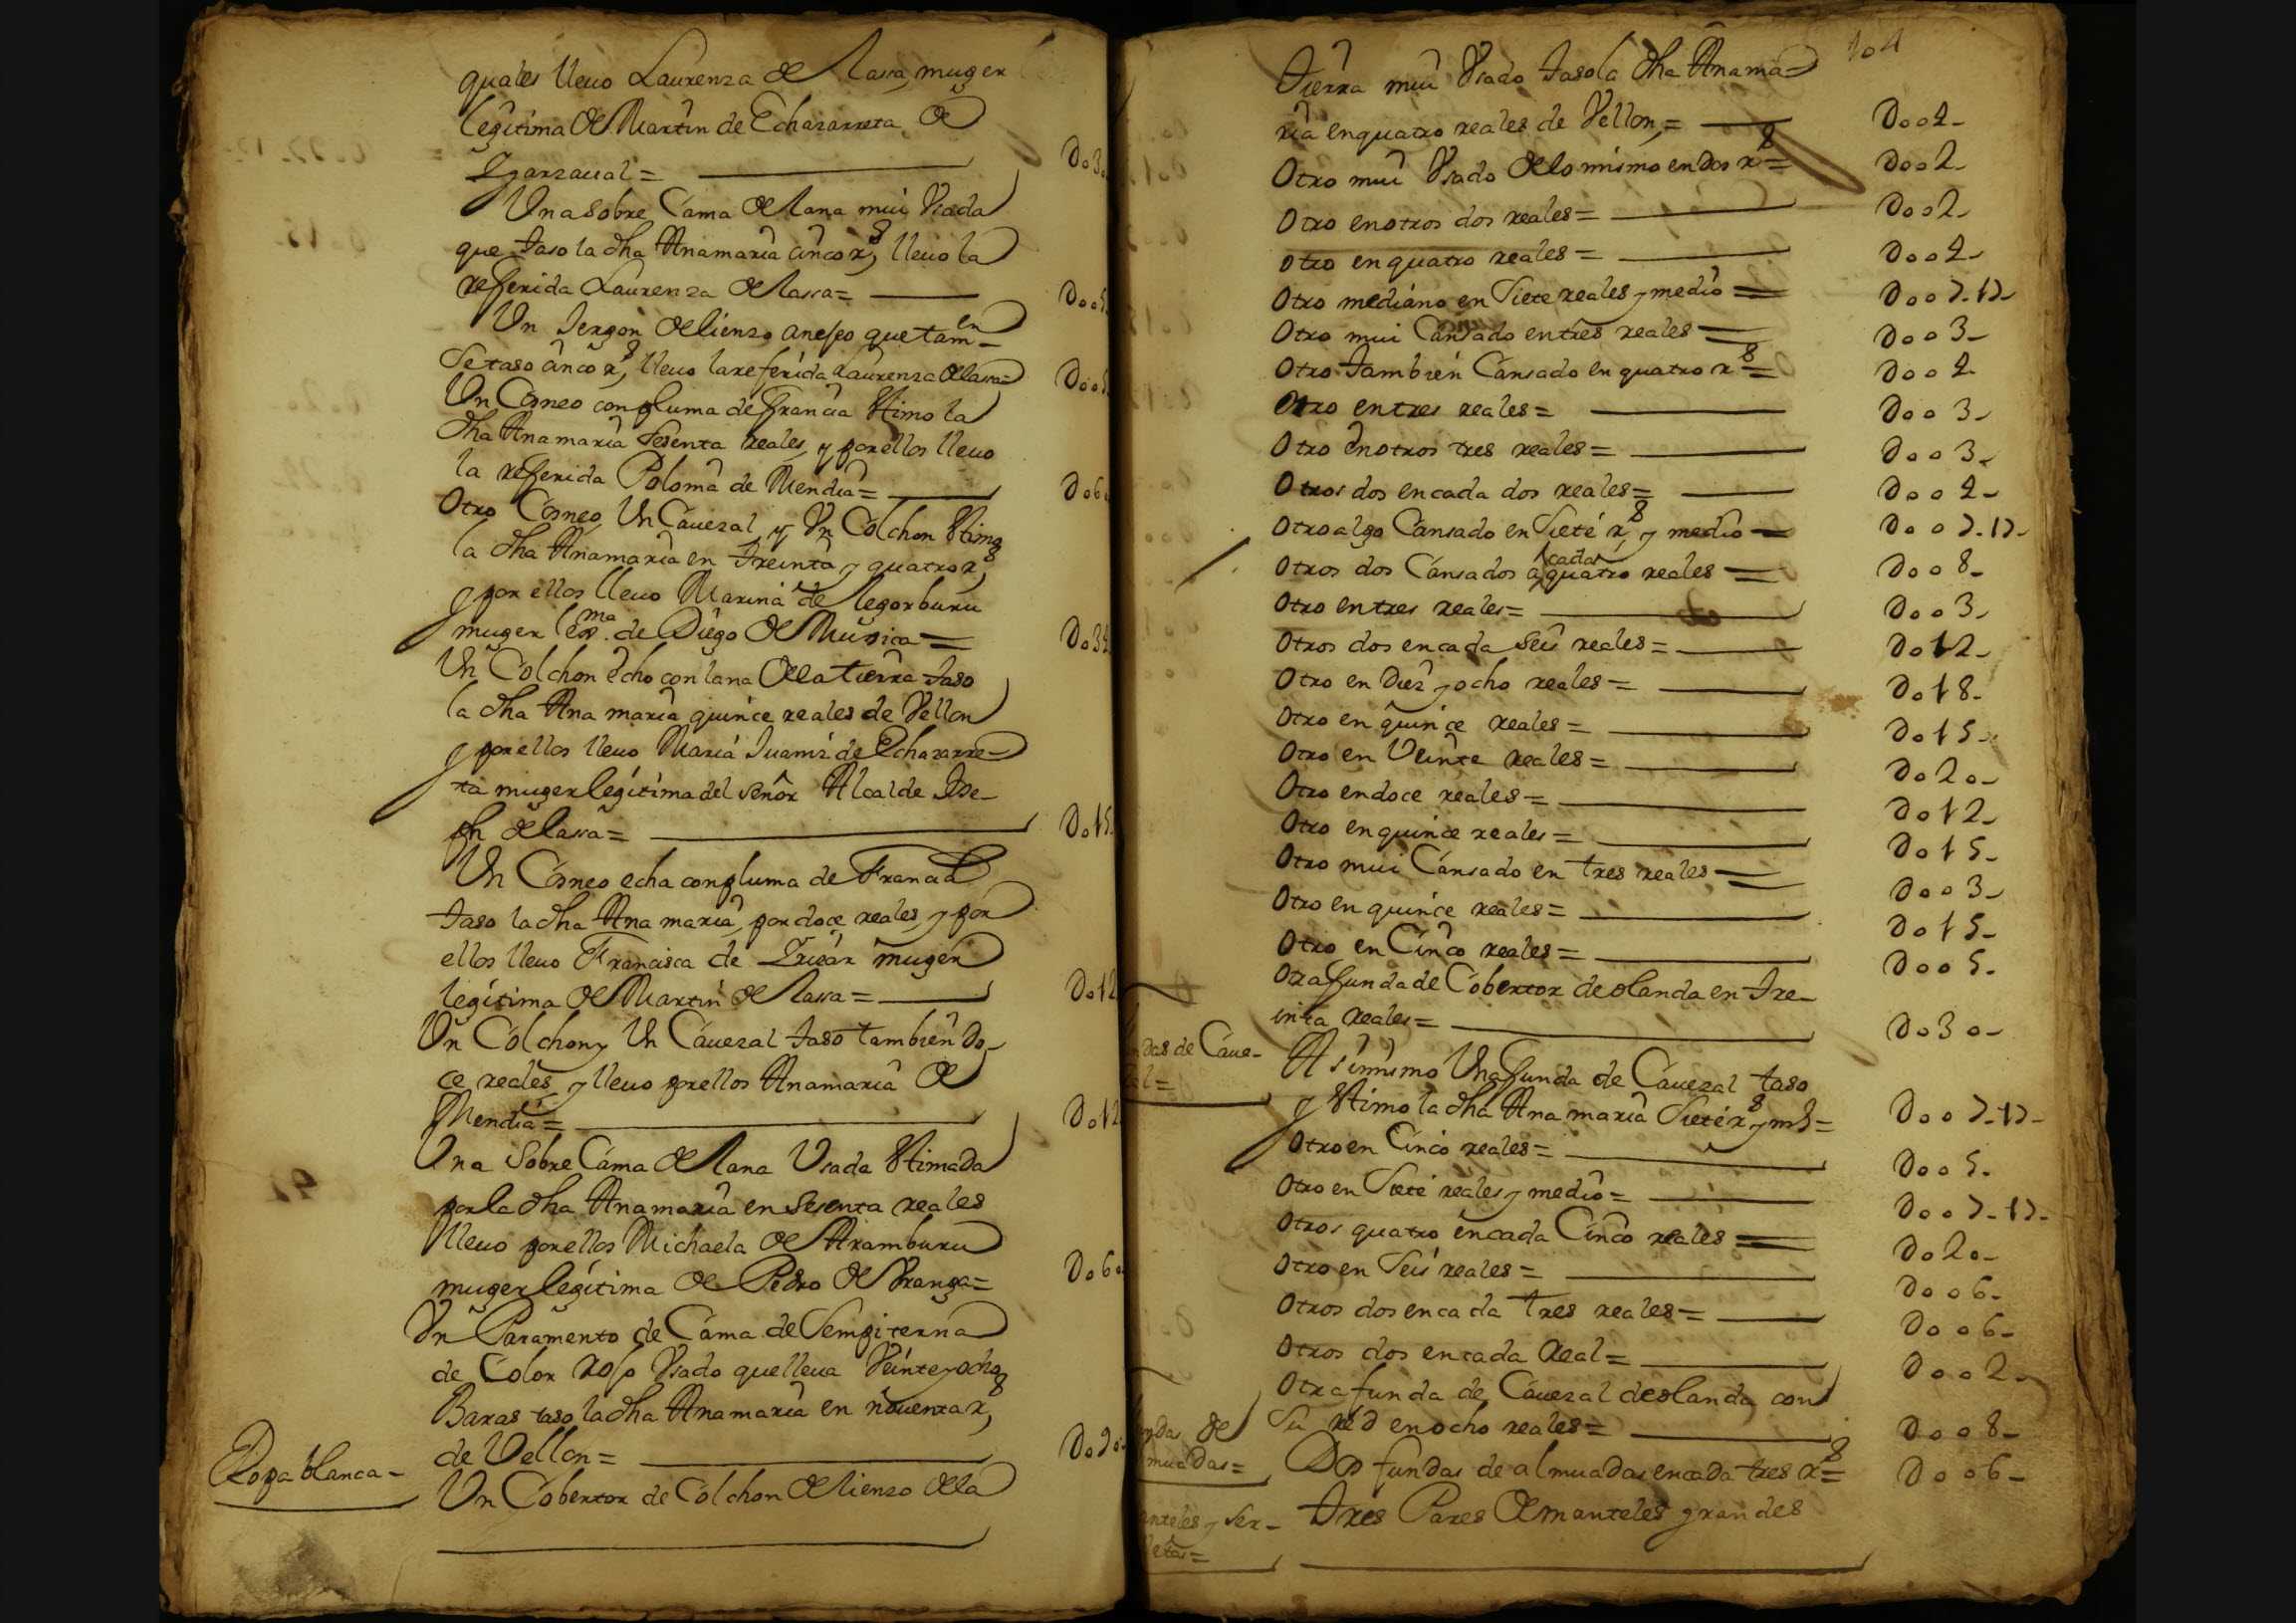 quales lleuo Laurenza de Lassa, muger
legitima de Martin de Echazarreta de
Ygarzaual=
Do3
Una sobre Cama de lana mui Vsada
que taso la dha Anamaria cinco rs, lleuo la
refferida Laurenza de lassa=
Doo5
Un Jergon de lienzo anejeo que tamen
se taso cinco rs, lleuo la referida Laurenza de lassa=
Doo5
Un Cosneo con pluma de francia Stimo la
dha Anamaria sesenta reales, y por ellos lleuo
la refferida Paloma de Mendia=
Do6
Otro Cosneo, Un Cauezal, y Un Colchon Stimo
la dha Anamaria en treinta y quatro rs,
y por ellos lleuo Marina de legorburu
muger lexma. de Diego de Muxica=
Do34
Un Colchon echo con lana de la tierra taso
la dha Ana maria quince reales de Vellon
y por ellos lleuo Maria Juaniz de Echazarre-
ta muger legitima del señor Alcalde Jose-
ph de lassa=
Do15
Un Cosneo echa con pluma de Francia
taso la dha Ana maria, por doce reales, y por
ellos lleuo Francisca de Yriear muger
legitima de Martin de Lassa=
Do12
Un Colchon y Un Cauezal taso tambien do-
ce reales, y lleuo por ellos Anamaria de
Mendia=
Do12
Una Sobre Cama de lana Vsada Stimada
por la dha Anamaria en sesenta reales
lleuo por ellos Michaela de Aramburu
muger legitima de Pedro de Vranga=
Do6o
Un Paramento de Cama de Sempiterna
de Color rojo Vsado que lleua Veinte y ocho
Baras taso la dha Anamaria en nouenta rs,
de Vellon=
Do9o
Ropa blanca-
Un Cobertor de Colchon de lienzo de la
104
tierra mui Vsado taso la dha Anama-
ria en quatro reales de Vellon,=
Doo4-
Otro mui Vsado de lo mismo en dos rs=
Doo2-
Otro en otros dos reales=
Doo2-
Otro en quatro reales=
Doo4-
Otro mediano en Siete reales y medio=
Doo7-17-
Otro mui Cansado en tres reales=
Doo3-
Otro tambien Cansado en quatro rs=
Doo4-
Otro en tres reales=
Doo3-
Otro en otros tres reales=
Doo3-
Otros dos en cada dos reales=
Doo4-
Otro algo Cansado en Siete rs y medio=
Doo7-17-
Otros dos Cansados a cada quatro reales=
Doo8-
Otro en tres reales=
Doo3-
Otros dos en cada seis reales=
Do12-
Otro en Diez y ocho reales=
Do18-
Otro en quince reales=
Do15-
Otro en Veinte reales=
Do2o-
Otro en doce reales=
Do12-
Otro en quince reales=
Do15-
Otro mui Cansado en tres reales=
Doo3-
Otro en quince reales=
Do15-
Otro en Cinco reales=
Doo5-
Otra funda de Cobertor de olanda en tre-
inta reales=
Do3o-
ndas de Caue-
al=
Asimismo Una funda de Cauezal taso
y Stimo la dha Ana maria Siete rs y mo=
Doo7-17-
Otro en Cinco reales=
Doo5-
Otro en Siete reales y medio=
Doo7-17-
Otros quatro en cada Cinco reales=
Do2o-
Otro en Seis reales=
Doo6-
Otros dos en cada tres reales=
Doo6-
Otros dos en cada Real=
Doo2-
Otra funda de Cauezal de olanda con
su red en ocho reales=
Doo8-
ndas de
muadas=
Dos fundas de almuadas en cada tres rs=
Doo6-
anteles y Ser-
lletas=
Tres Pares de manteles grandes